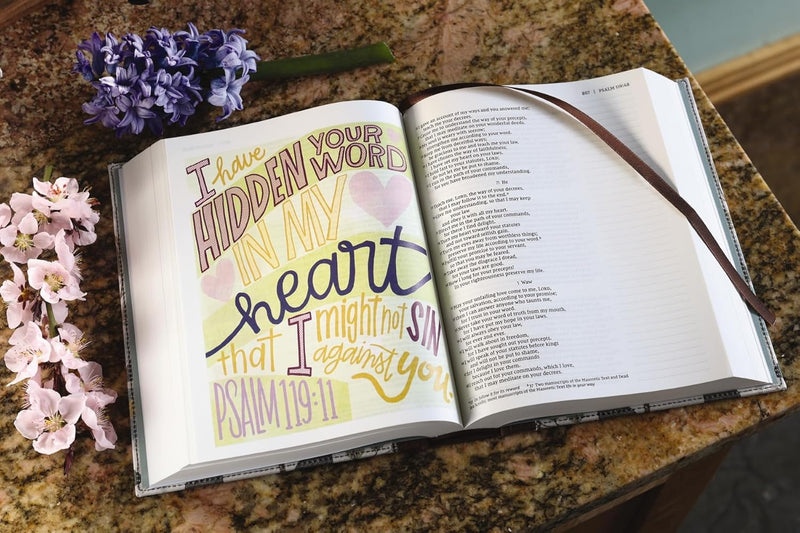 I have
HIDDEN YOUR WORD
IN MY
heart
that I might not SIN
against you.
PSALM 119:11
PSALM 119:48
gave an account of my ways and you answered me;
teach me your decrees.
to understand the way of your precepts,
may meditate on your wonderful deeds.
weary with sorrow;
me according to your word.
me from deceitful ways;
me and teach me your law.
the way of faithfulness;
my heart on your laws.
fast to your statutes, LORD;
let me be put to shame.
in the path of your commands,
for you have broadened my understanding.
ה He
Teach me, LORD, the way of your decrees,
that I may follow it to the end.
me understanding, so that I may keep
your law
and obey it with all my heart.
me in the path of your commands,
for there I find delight.
Turn my heart toward your statutes
and not toward selfish gain.
Turn my eyes away from worthless things;
my life according to your word.
your promise to your servant,
so that you may be feared.
Take away the disgrace I dread,
for your laws are good.
How I long for your precepts!
In your righteousness preserve my life.
ו Waw
May your unfailing love come to me, LORD,
your salvation, according to your promise;
then I can answer anyone who taunts me,
for I trust in your word.
Never take your word of truth from my mouth,
for I have put my hope in your laws.
I will always obey your law,
for ever and ever.
I will walk about in freedom,
for I have sought out your precepts.
I will speak of your statutes before kings
and will not be put to shame,
for I delight in your commands
because I love them.
I reach out for your commands, which I love,
that I may meditate on your decrees.
Two manuscripts of the Masoretic Text and Dead
most manuscripts of the Masoretic Text life in your way